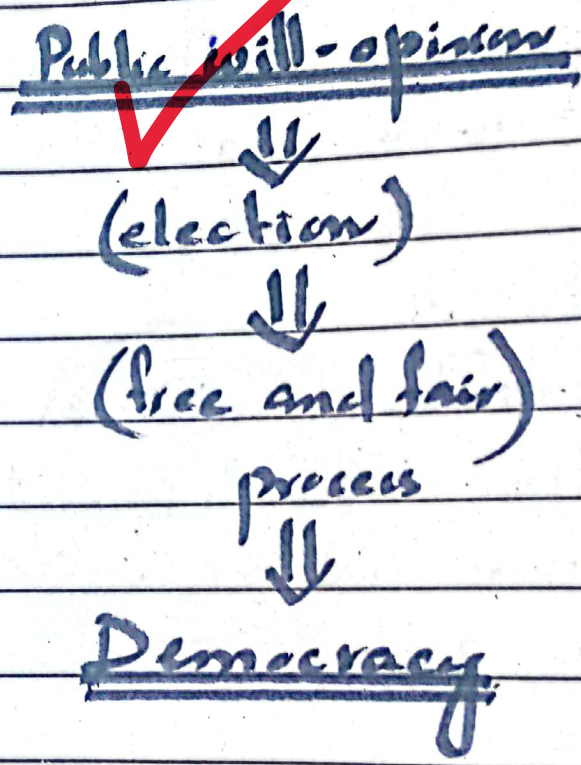 Public will-opinion
⇓
(election)
⇓
(free and fair)
process
⇓
Democracy